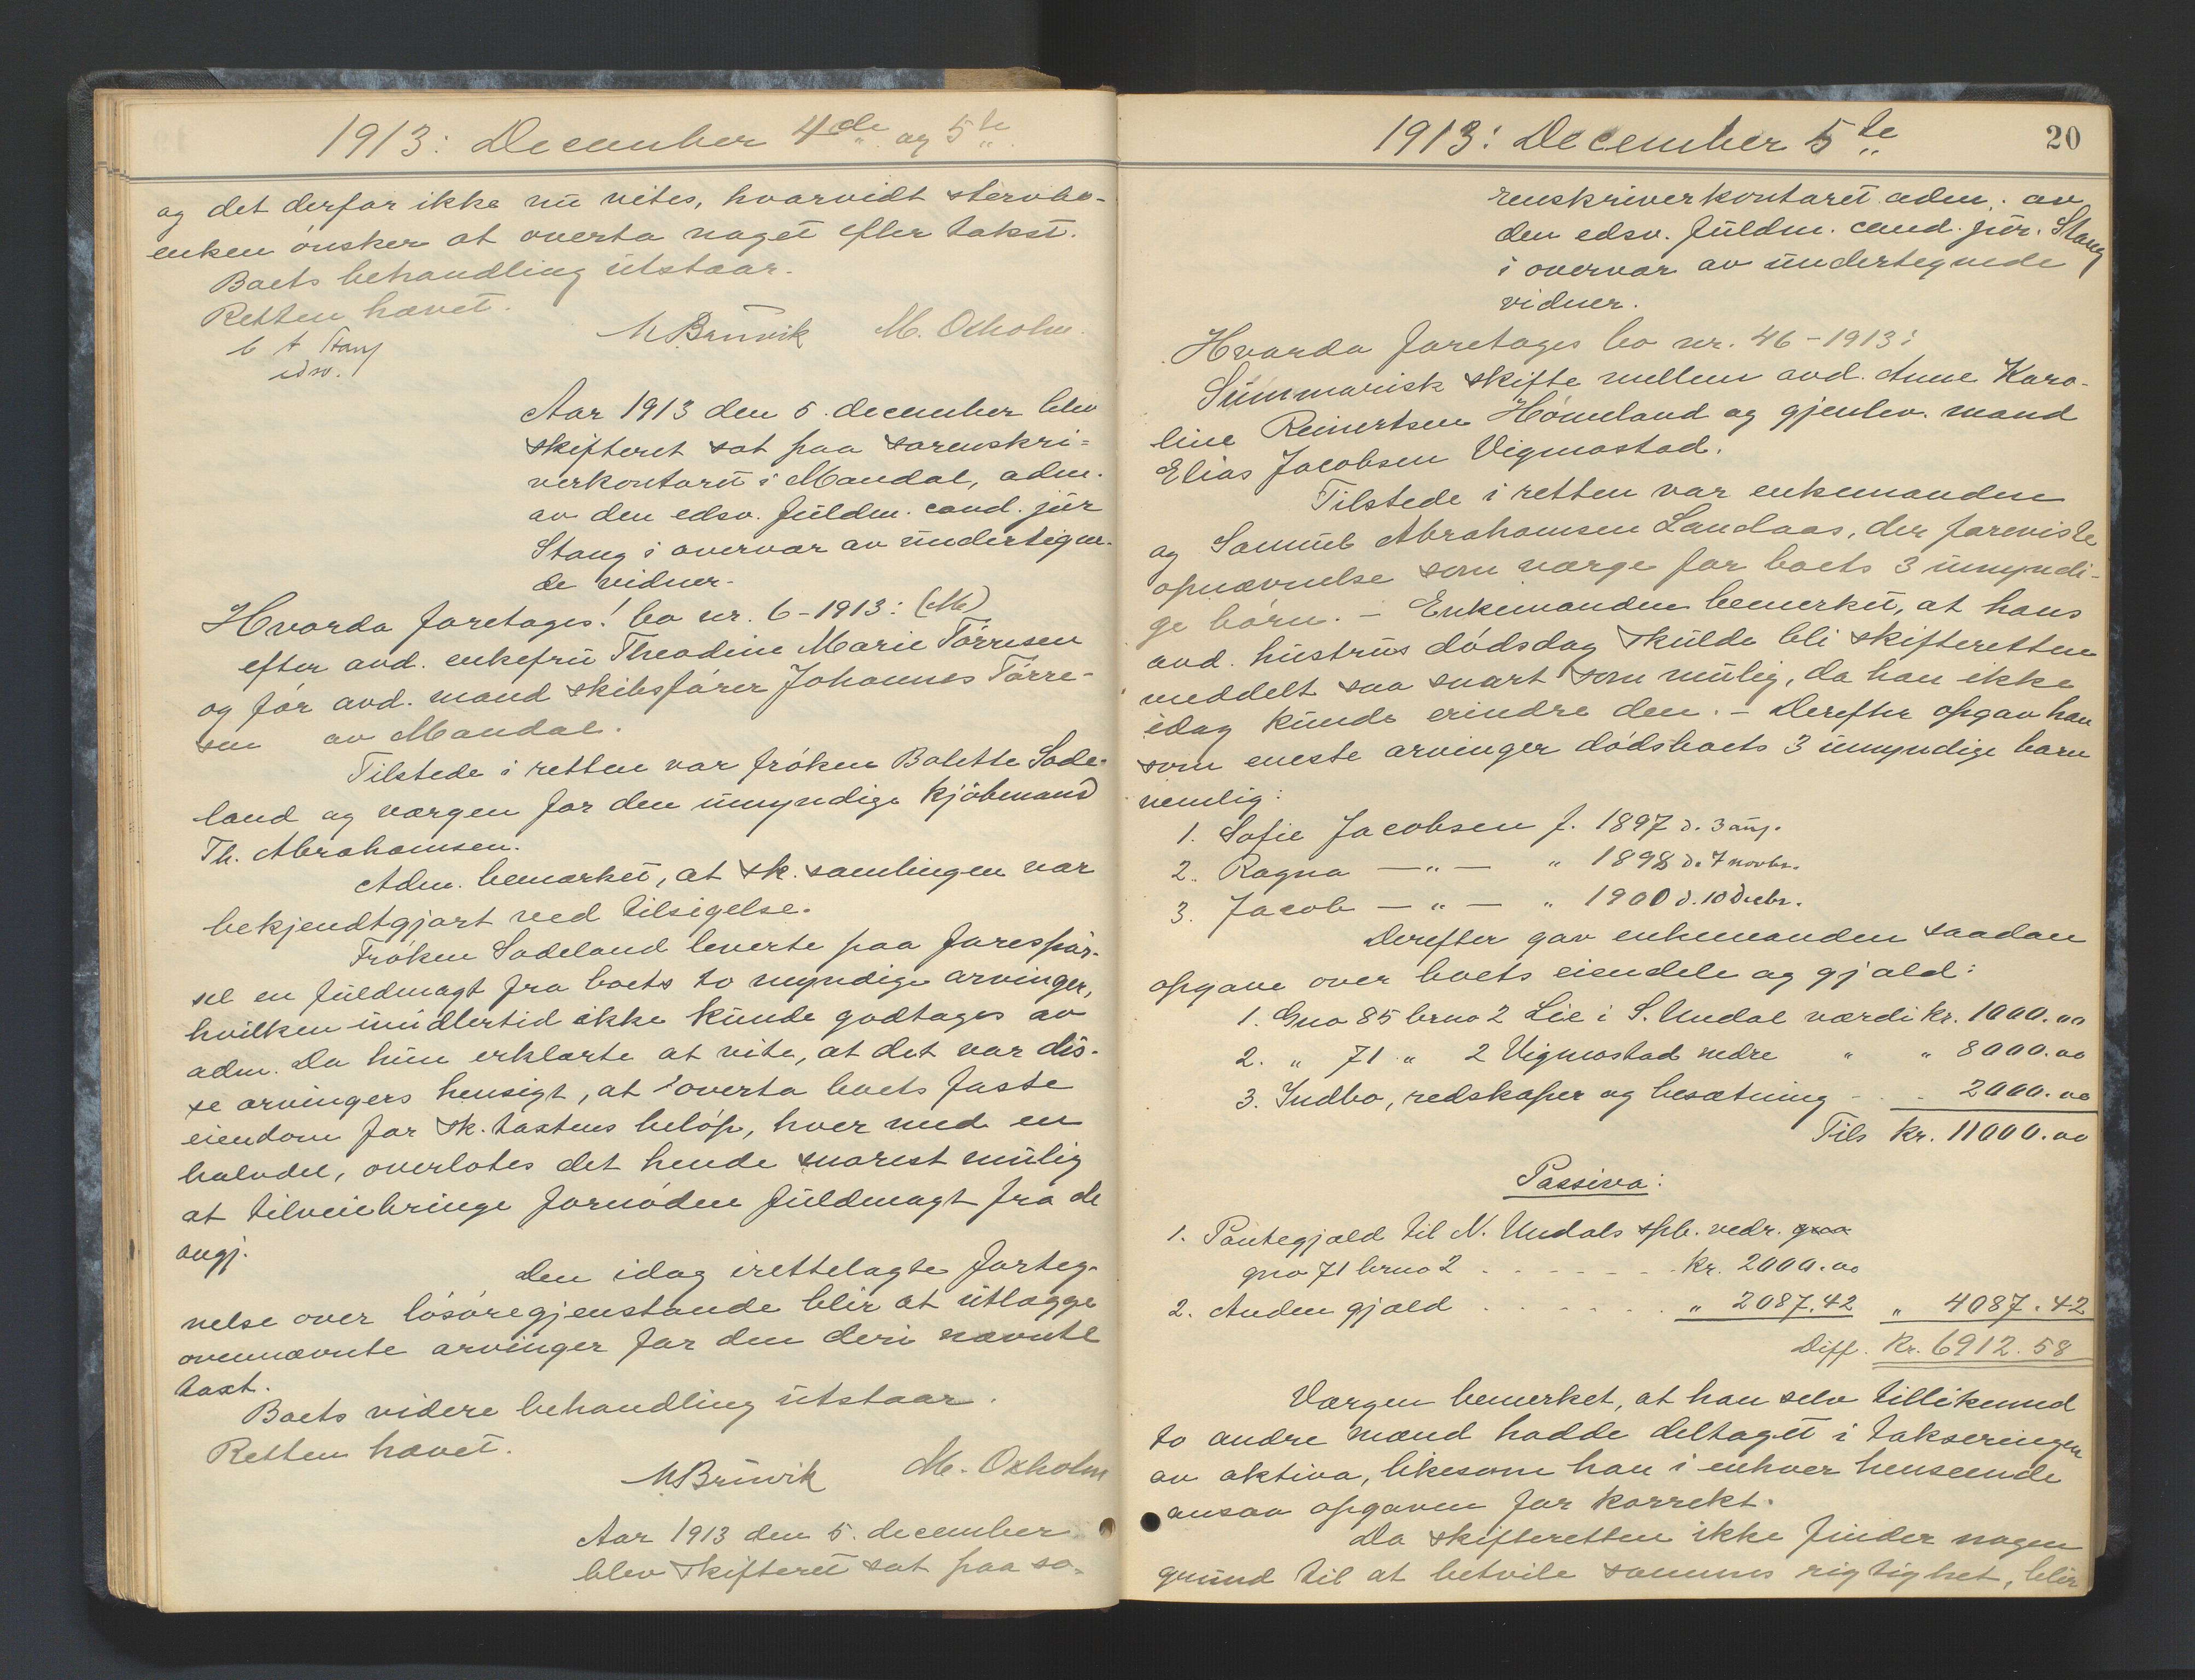 1913: December 4de og 5te
og det derfor ikke nu vites, hvorvidt stervbo-
enken ønsker at overta noget efter takst.
Boets behandling utstaar.
Retten hævet.
M Brinvik M. Oxholm.
C A Stang
edsv.
Aar 1913 den 5. december blev
skifteret sat paa sorenskri-
verkontoret i Mandal, adm.
av den edsv. fuldm. cand. jur
Stang i overvær av undertegne-
de vidner.
Hvorda foretages: bo nr. 6-1913: (M)
efter avd. enkefru Theodine Marie Tørresen
og før avd. mand skibsfører Johannes Tørre-
sen av Mandal.
Tilstede i retten var frøken Bolette Sode-
land og værgen for den umyndige kjøbmand
Th. Abrahamsen.
Adm. bemærket, at sk. samlingen var
bekjendtgjort ved tilsigelse.
Frøken Sodeland leverte paa forespør-
sel en fuldmagt fra boets to myndige arvinger,
hvilken imidlertid ikke kunde godtages av
adm. Da hun erklærte at vite, at det var dis-
se arvingers hensigt, at overta boets faste
eiendom for sk. taxtens beløp, hver med en
halvdel, overlotes det hende snarest mulig
at tilveiebringe fornøden fuldmagt fra de
angj.
Den idag irettelagte forteg-
nelse over løsøregjenstande blir at utlægge
ovennævnte arvinger for den deri nævnte
taxt.
Boets videre behandling utstaar.
Retten hævet.
M Brinvik M. Oxholm
Aar 1913 den 5. december
blev skifteret sat paa so-
1913: December 5te
20
renskriverkontoret adm. av
den edsv. fuldm. cand. jur. Stang
i overvær av undertegnede
vidner.
Hvorda foretages bo nr. 46-1913:
Summarisk skifte mellem avd. Anne Karo-
line Reinertsen Hømeland og gjenlev. mand
Elias Jacobsen Vigmostad.
Tilstede i retten var enkemanden
og Samuel Abrahamsen Landaas, der foreviste
opnævnelse som værge for boets 3 umyndi-
ge børn. - Enkemanden bemerket, at hans
avd. hustrus dødsdag skulde bli skifteretten
meddelt saa snart som mulig, da han ikke
idag kunde erindre den. - Derefter opgav han
som eneste arvinger dødsboets 3 umyndige barn
nemlig:
1. Sofie Jacobsen f. 1897 d. 3 aug.
2. Ragna — " — " 1898 d. 7 novbr.
3. Jacob — " — " 1900 d. 10 decbr.
Derefter gav enkemanden saadan
opgave over boets eiendele og gjæld:
1. Gno 85 brno 2 Lie i S. Undal værdi kr. 1000.00
2. " 71 " 2 Vigmostad nedre " " 8000.00
3. Indbo, redskaper og besætning - . . 2000.00
Tils kr. 11000.00
Passiva:
1. Pantegjæld til N. Undals spb. vedr. gno
gno 71 brno 2 . - - - - - kr. 2000.00
2. Anden gjæld . . . . . . " 2087.42 " 4087.42
Diff. Kr. 6912.58
Værgen bemerket, at han selv tillikemed
to andre mænd hadde deltaget i takseringen
av aktiva, likesom han i enhver henseende
ansaa opgaven for korrekt.
Da skifteretten ikke finder nogen
grund til at betvile sammes rigtighet, blir